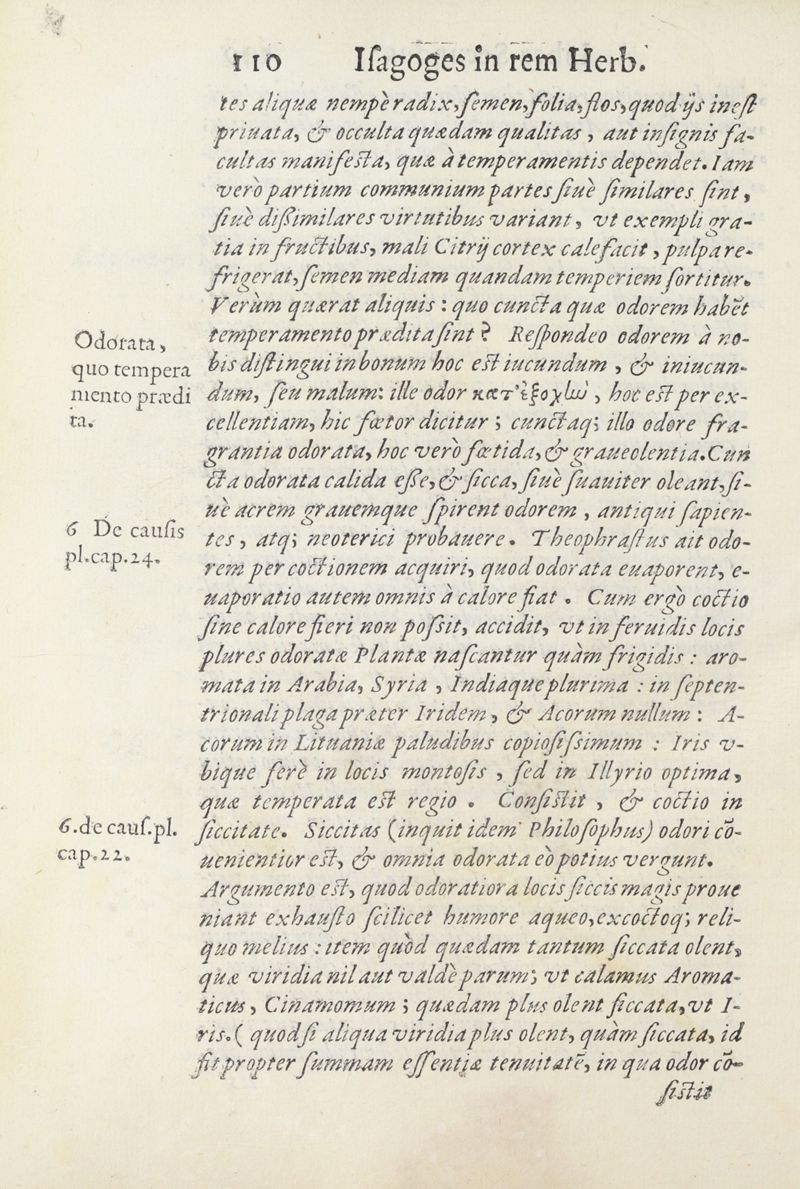 110 Iſagoges in rem Herb.
tes aliquæ nempè radix, ſemen, folia, flos, quod ijs ineſt
priuata, & occulta quædam qualitas, aut inſignis fa-
cultas manifeſta, quæ à temperamentis dependet. Iam
verò partium communium partes ſiuè ſimilares ſint,
ſiuè dißimilares virtutibus variant, vt exempli gra-
tia in fructibus, mali Citrij cortex calefacit, pulpa re-
frigerat, ſemen mediam quandam temperiem ſortitur.
Verùm quærat aliquis: quo cuncta quæ odorem habẽt
Odorata,
quo tempera
mento prædi
ta.
temperamento prædita ſint? Reſpondeo odorem à no-
bis diſtingui in bonum hoc eſt iucundum, & iniucun-
dum, ſeu malum: ille odor κατ' ἐξοχὼ, hoc eſt per ex-
cellentiam, hic fœtor dicitur; cunctaq; illo odore fra-
grantia odorata, hoc verò fœtida, & graueolentia. Cun
cta odorata calida eſſe, & ſicca, ſiuè ſuauiter oleant, ſi-
uè acrem grauemque ſpirent odorem, antiqui ſapien-
6 De cauſis
pl. cap. 24.
tes, atq; neoterici probauere. Theophraſtus ait odo-
rem per coctionem acquiri, quod odorata euaporent, e-
uaporatio autem omnis à calore fiat. Cum ergò coctio
ſine calore fieri non poſsit, accidit, vt in feruidis locis
plures odoratæ Plantæ naſcantur quàm frigidis: aro-
mata in Arabia, Syria, Indiaque plurima: in ſepten-
trionali plaga præter Iridem, & Acorum nullum: A-
corum in Lituaniæ paludibus copioſiſsimum: Iris v-
bique ferè in locis montoſis, ſed in Illyrio optima,
quæ temperata eſt regio. Conſiſtit, & coctio in
6. de cauſ. pl.
cap. 22.
ſiccitate. Siccitas (inquit idem Philoſophus) odori cõ-
uenientior eſt, & omnia odorata eò potius vergunt.
Argumento eſt, quod odoratiora locis ſiccis magis proue
niant exhauſto ſcilicet humore aqueo, excoctoq; reli-
quo melius: item quòd quædam tantum ſiccata olent,
quæ viridia nil aut valdè parum; vt calamus Aroma-
ticus, Cinamomum; quædam plus olent ſiccata, vt I-
ris. (quod ſi aliqua viridia plus olent, quàm ſiccata, id
fit propter ſummam eſſentiæ tenuitatẽ, in qua odor cõ-
ſiſtit